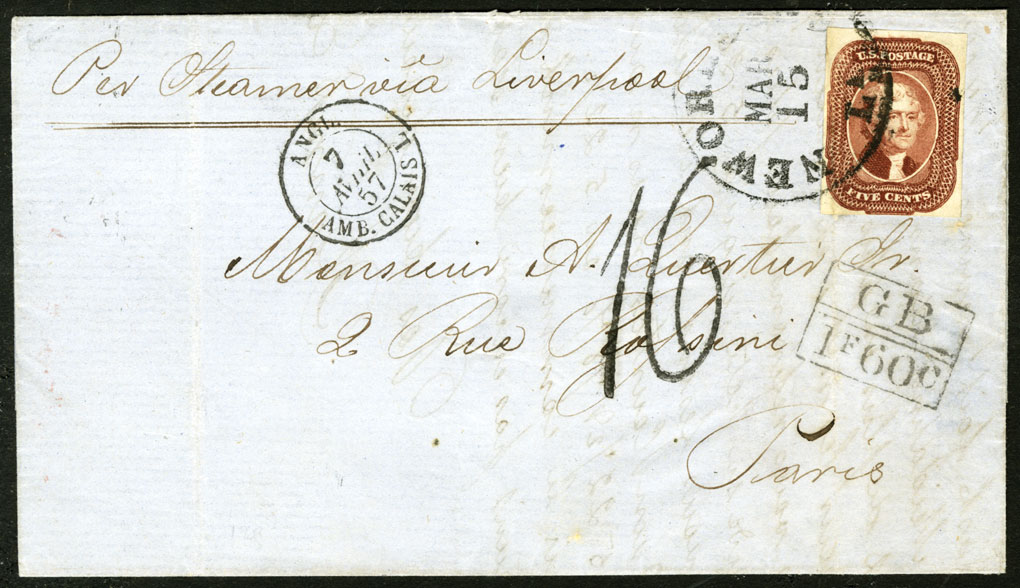 Per Steamer via Liverpool
NEW ORL LA
MAR
15
U.S. POSTAGE
FIVE CENTS
ANGL.
7
AVRIL
57
AMB. CALAIS L
16
Monsieur A. Quertier Jr.
2 Rue Rossini
Paris
GB
1F60C